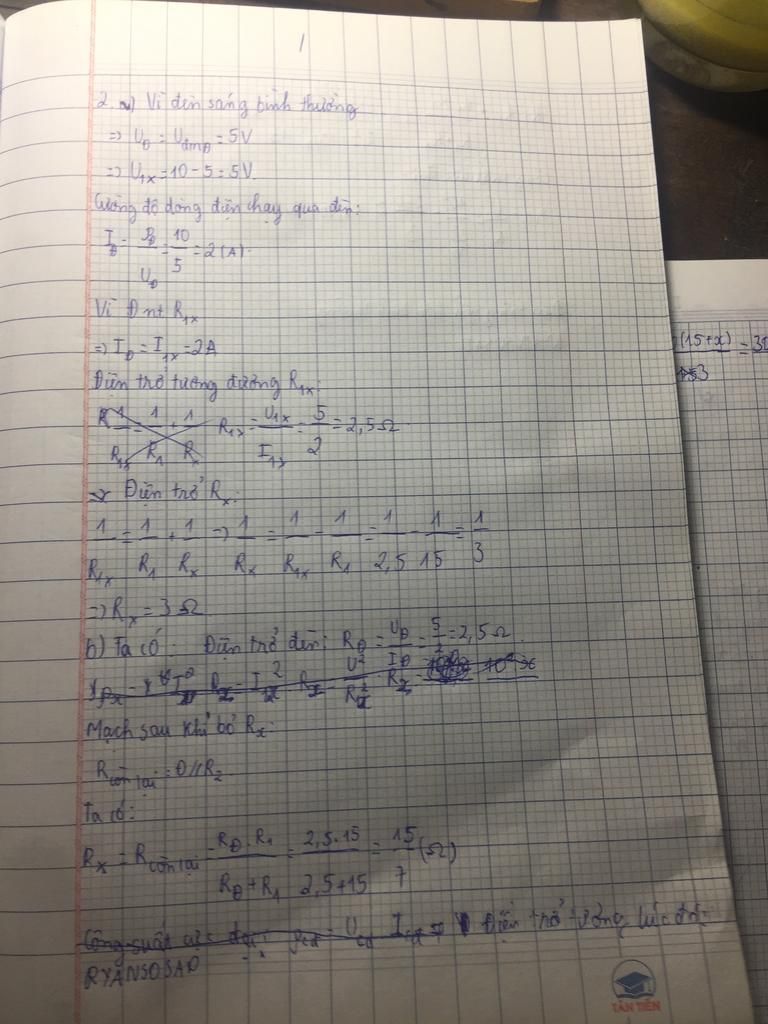 1
2. a) Vì đèn sáng bình thường
=> U_Đ = U_đmĐ = 5V
=> U_1x = 10 - 5 = 5V.
Cường độ dòng điện chạy qua đèn:
I_Đ = P_Đ/U_Đ = 10/5 = 2 (A).
Vì Đ nt R_1x
=> I_Đ = I_1x = 2A
Điện trở tương đương R_1x:
R_1x = U_1x/I_1x = 5/2 = 2,5Ω
=> Điện trở R_x:
1/R_1x = 1/R_1 + 1/R_x => 1/R_x = 1/R_1x - 1/R_1 = 1/2,5 - 1/15 = 1/3
=> R_x = 3Ω
b) Ta có: Điện trở đèn: R_Đ = U_Đ/I_Đ = 5/2 = 2,5Ω.
Mạch sau khi bỏ R_x:
R_còn lại = Đ // R_2
Ta có:
R_x = R_còn lại = R_Đ.R_1/R_Đ+R_1 = 2,5.15/2,5+15 = 15/7 (Ω)
Công suất cực đại: = U_cđ I_cđ = Điện trở tương lúc đó:
RYANSOSAD
TÂN TIẾN
(15+x)